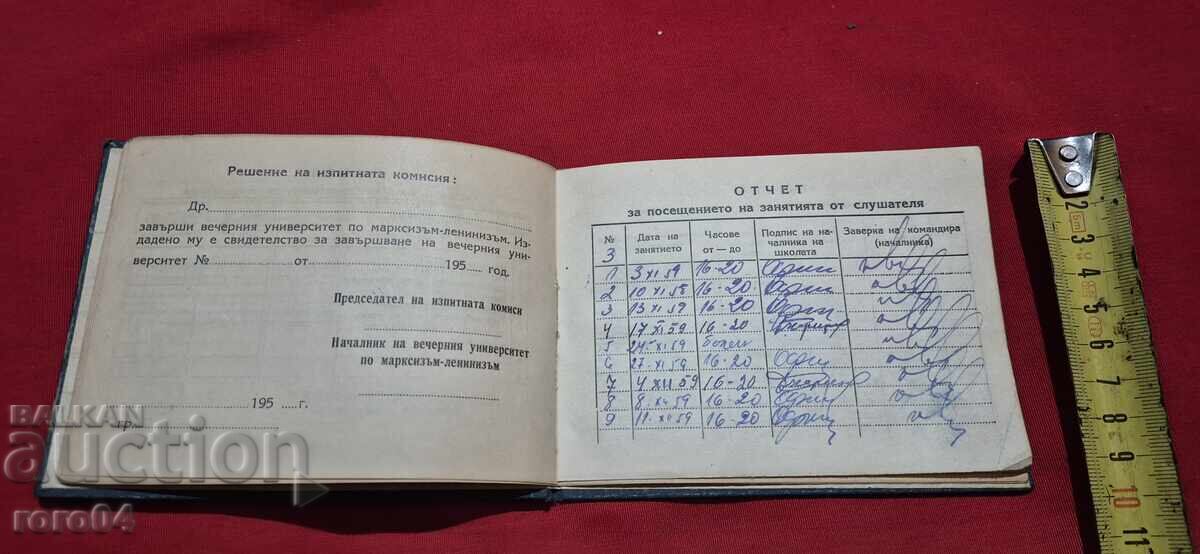 Решение на изпитната комисия:
Др.
завърши вечерния университет по марксизъм-ленинизъм. Из-
дадено му е свидетелство за завършване на вечерния уни-
верситет № от 195 год.
Председател на изпитната комиси
Началник на вечерния университет
по марксизъм-ленинизъм
195 г.
гр.
ОТЧЕТ
за посещението на занятията от слушателя
№ Дата на занятието Часове от — до Подпис на на-чалника на школата Заверка на командира (началника)
3
1 3 XI 59 16-20
2 10 XI 59 16-20
3 13 XI 59 16-20
4 17 XI 59 16-20
5 24 XI 59 болен
6 27 XI 59 16-20
7 4 XII 59 16-20
8 8 XII 59 16-20
9 11 XII 59 16-20
BALKAN
auction
roro04
2
3
4
5
6
7
8
9
10
11